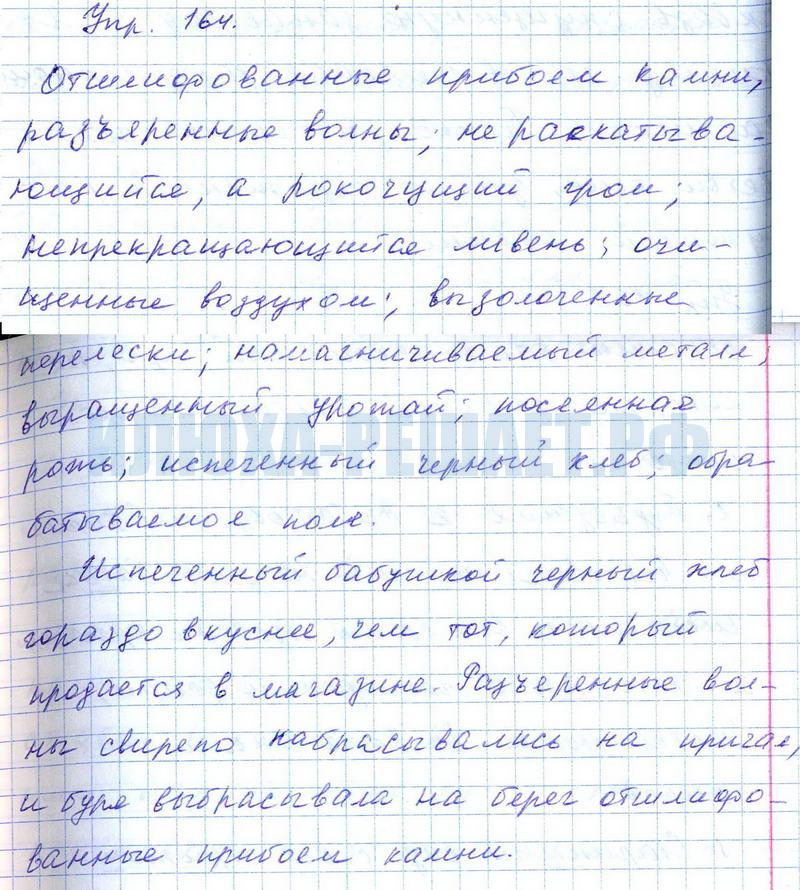 Упр. 164.
Отшлифованные прибоем камни,
разъяренные волны; не раскатыва-
ющийся, а рокочущий гром;
непрекращающийся ливень; очи-
щенные воздухом; вызолоченные
перелески; намагничиваемый металл;
выращенный урожай; посеянная
рожь; испеченный черный хлеб; обра-
батываемое поле.
Испеченный бабушкой черный хлеб
гораздо вкуснее, чем тот, который
продается в магазине. Разъеренные вол-
ны свирепо набрасывались на причал,
и буря выбрасывала на берег отшлифо-
ванные прибоем камни.
ИЛЮХА-РЕШАЕТ.РФ